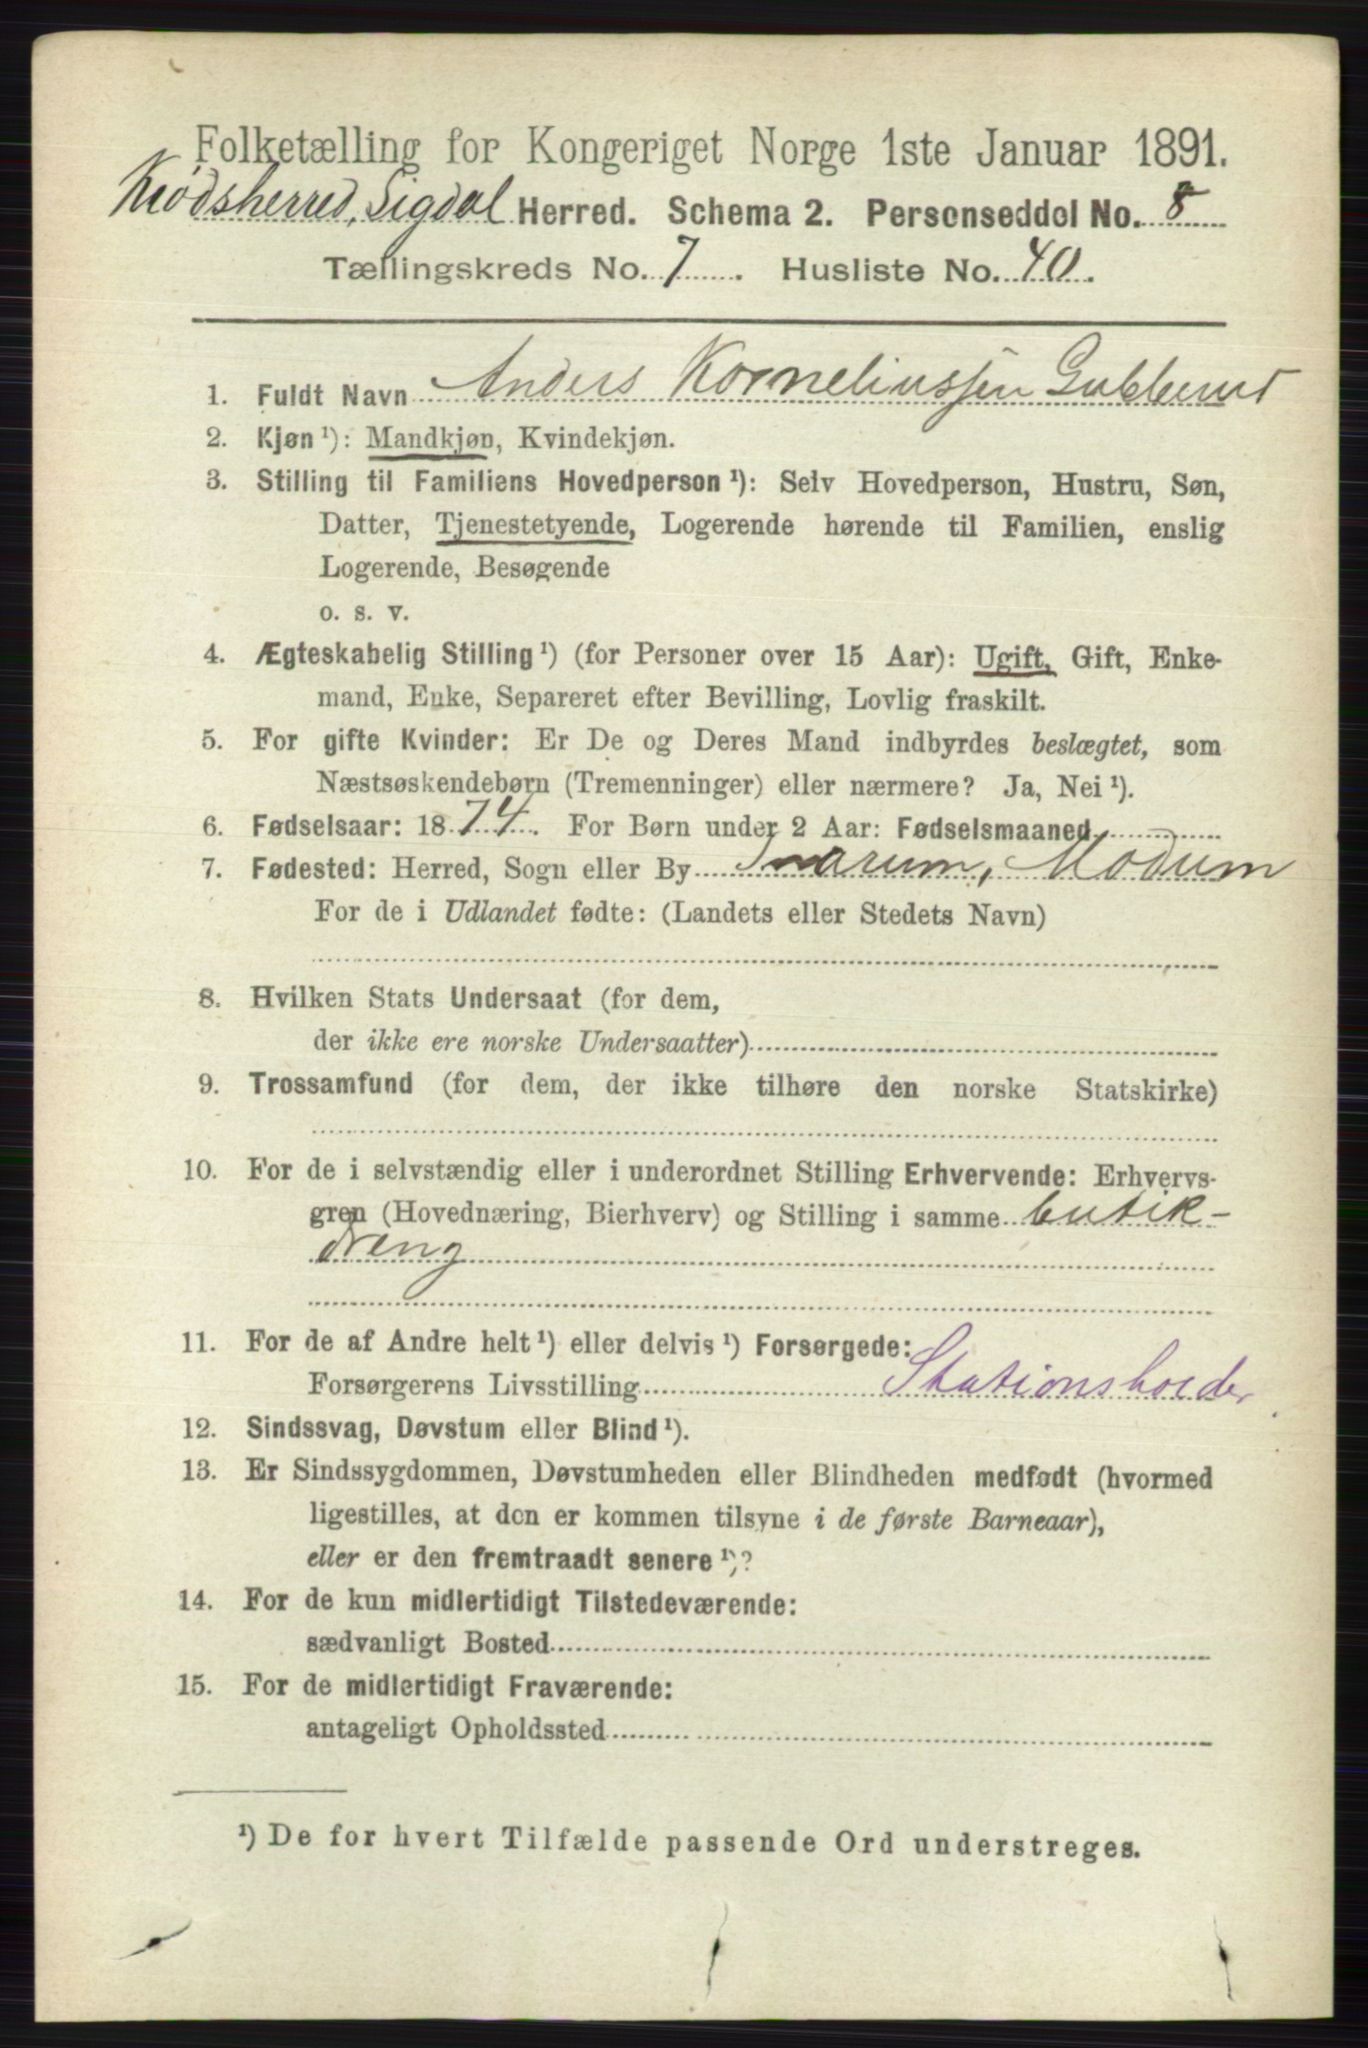 Folketælling for Kongeriget Norge 1ste Januar 1891.
Krødsherred, Sigdal Herred. Schema 2. Personseddel No. 8
Tællingskreds No. 7. Husliste No. 40.
1. Fuldt Navn Anders Korneliussen Gubberud
2. Kjøn ¹): Mandkjøn, Kvindekjøn.
3. Stilling til Familiens Hovedperson ¹): Selv Hovedperson, Hustru, Søn,
Datter, Tjenestetyende, Logerende hørende til Familien, enslig
Logerende, Besøgende
o. s. v.
4. Ægteskabelig Stilling ¹) (for Personer over 15 Aar): Ugift, Gift, Enke-
mand, Enke, Separeret efter Bevilling, Lovlig fraskilt.
5. For gifte Kvinder: Er De og Deres Mand indbyrdes beslægtet, som
Næstsøskendebørn (Tremenninger) eller nærmere? Ja, Nei ¹).
6. Fødselsaar: 1874. For Børn under 2 Aar: Fødselsmaaned
7. Fødested: Herred, Sogn eller By Snarum, Modum
For de i Udlandet fødte: (Landets eller Stedets Navn)
8. Hvilken Stats Undersaat (for dem,
der ikke ere norske Undersaatter)
9. Trossamfund (for dem, der ikke tilhøre den norske Statskirke)
10. For de i selvstændig eller i underordnet Stilling Erhvervende: Erhvervs-
gren (Hovednæring, Bierhverv) og Stilling i samme butik-
dreng
11. For de af Andre helt ¹) eller delvis ¹) Forsørgede:
Forsørgerens Livsstilling Stationsholder
12. Sindssvag, Døvstum eller Blind ¹).
13. Er Sindssygdommen, Døvstumheden eller Blindheden medfødt (hvormed
ligestilles, at den er kommen tilsyne i de første Barneaar),
eller er den fremtraadt senere ¹)?
14. For de kun midlertidigt Tilstedeværende:
sædvanligt Bosted
15. For de midlertidigt Fraværende:
antageligt Opholdssted
¹) De for hvert Tilfælde passende Ord understreges.